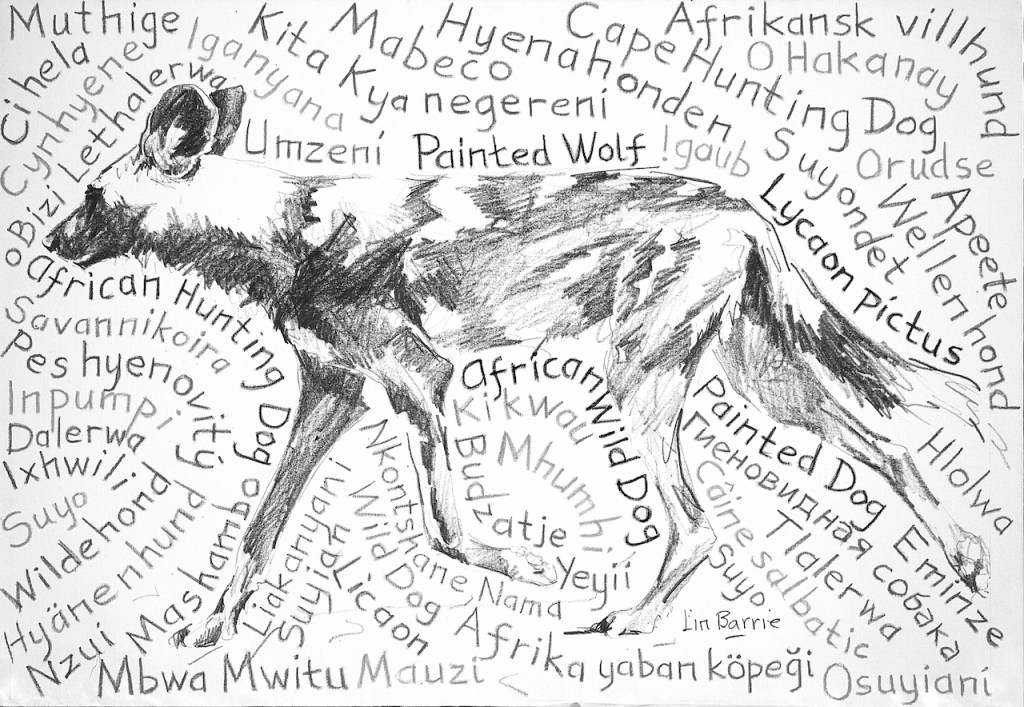 Muthige
Cihela
Cynhyene
oBizi
Lethalerwa
Iganyana
Kita
Mabeco
Kya negereni
Hyenahonden
Cape Hunting Dog
Afrikansk villhund
O Hakanay
Orudse
Umzeni
Painted Wolf
!gaub
Suyondet
Wellenhond
Apeete
Lycaon Pictus
African Hunting Dog
Savannikoira
Pes hyenovitý
Inpumpi
Dalerwa
Ixhwili
Suyo
Wildehond
Hyänenhund
Nzui
Mashambo
Liakanyani
Suyian
Licaon
Wild Dog
Nkontshane
African Wild Dog
Kikwau
Mhumhi
Budzatje
Yeyií
Nama
Painted Dog
Гиеновидная собака
Câinesalbatic
Suyo
Tlalerwa
Eminze
Hlolwa
Lin Barrie
Mbwa Mwitu
Mauzi
Afrika yaban köpeği
Osuyiani